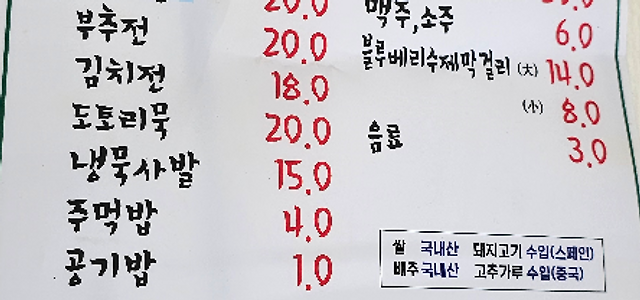 부추전 20.0
김치전 18.0
도토리묵 20.0
냉묵사발 15.0
주먹밥 4.0
공기밥 1.0
맥주,소주 6.0
블루베리수제막걸리 (大) 14.0
(小) 8.0
음료 3.0
쌀 국내산 돼지고기 수입(스페인)
배추 국내산 고추가루 수입(중국)